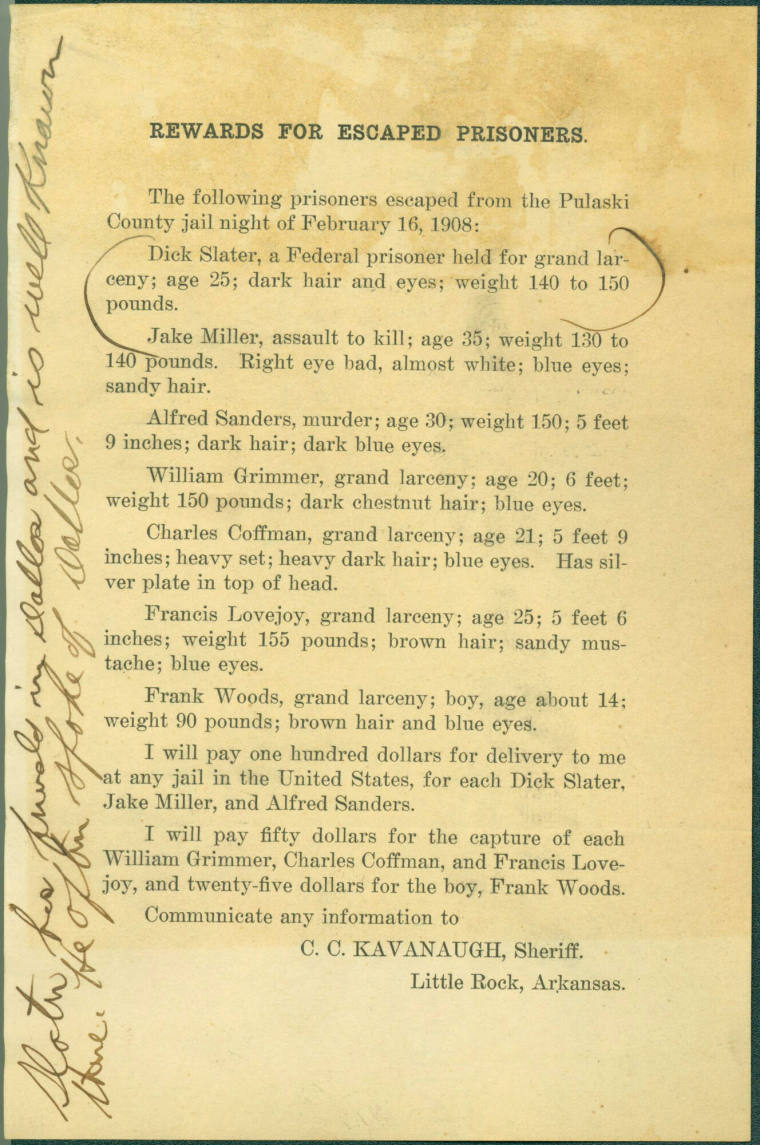 REWARDS FOR ESCAPED PRISONERS.
The following prisoners escaped from the Pulaski
County jail night of February 16, 1908:
Dick Slater, a Federal prisoner held for grand lar-
ceny; age 25; dark hair and eyes; weight 140 to 150
pounds.
Jake Miller, assault to kill; age 35; weight 130 to
140 pounds. Right eye bad, almost white; blue eyes;
sandy hair.
Alfred Sanders, murder; age 30; weight 150; 5 feet
9 inches; dark hair; dark blue eyes.
William Grimmer, grand larceny; age 20; 6 feet;
weight 150 pounds; dark chestnut hair; blue eyes.
Charles Coffman, grand larceny; age 21; 5 feet 9
inches; heavy set; heavy dark hair; blue eyes. Has sil-
ver plate in top of head.
Francis Lovejoy, grand larceny; age 25; 5 feet 6
inches; weight 155 pounds; brown hair; sandy mus-
tache; blue eyes.
Frank Woods, grand larceny; boy, age about 14;
weight 90 pounds; brown hair and blue eyes.
I will pay one hundred dollars for delivery to me
at any jail in the United States, for each Dick Slater,
Jake Miller, and Alfred Sanders.
I will pay fifty dollars for the capture of each
William Grimmer, Charles Coffman, and Francis Love-
joy, and twenty-five dollars for the boy, Frank Woods.
Communicate any information to
C. C. KAVANAUGH, Sheriff.
Little Rock, Arkansas.
Slater has friends in Dallas and is well known
there. He often spoke of Dallas.